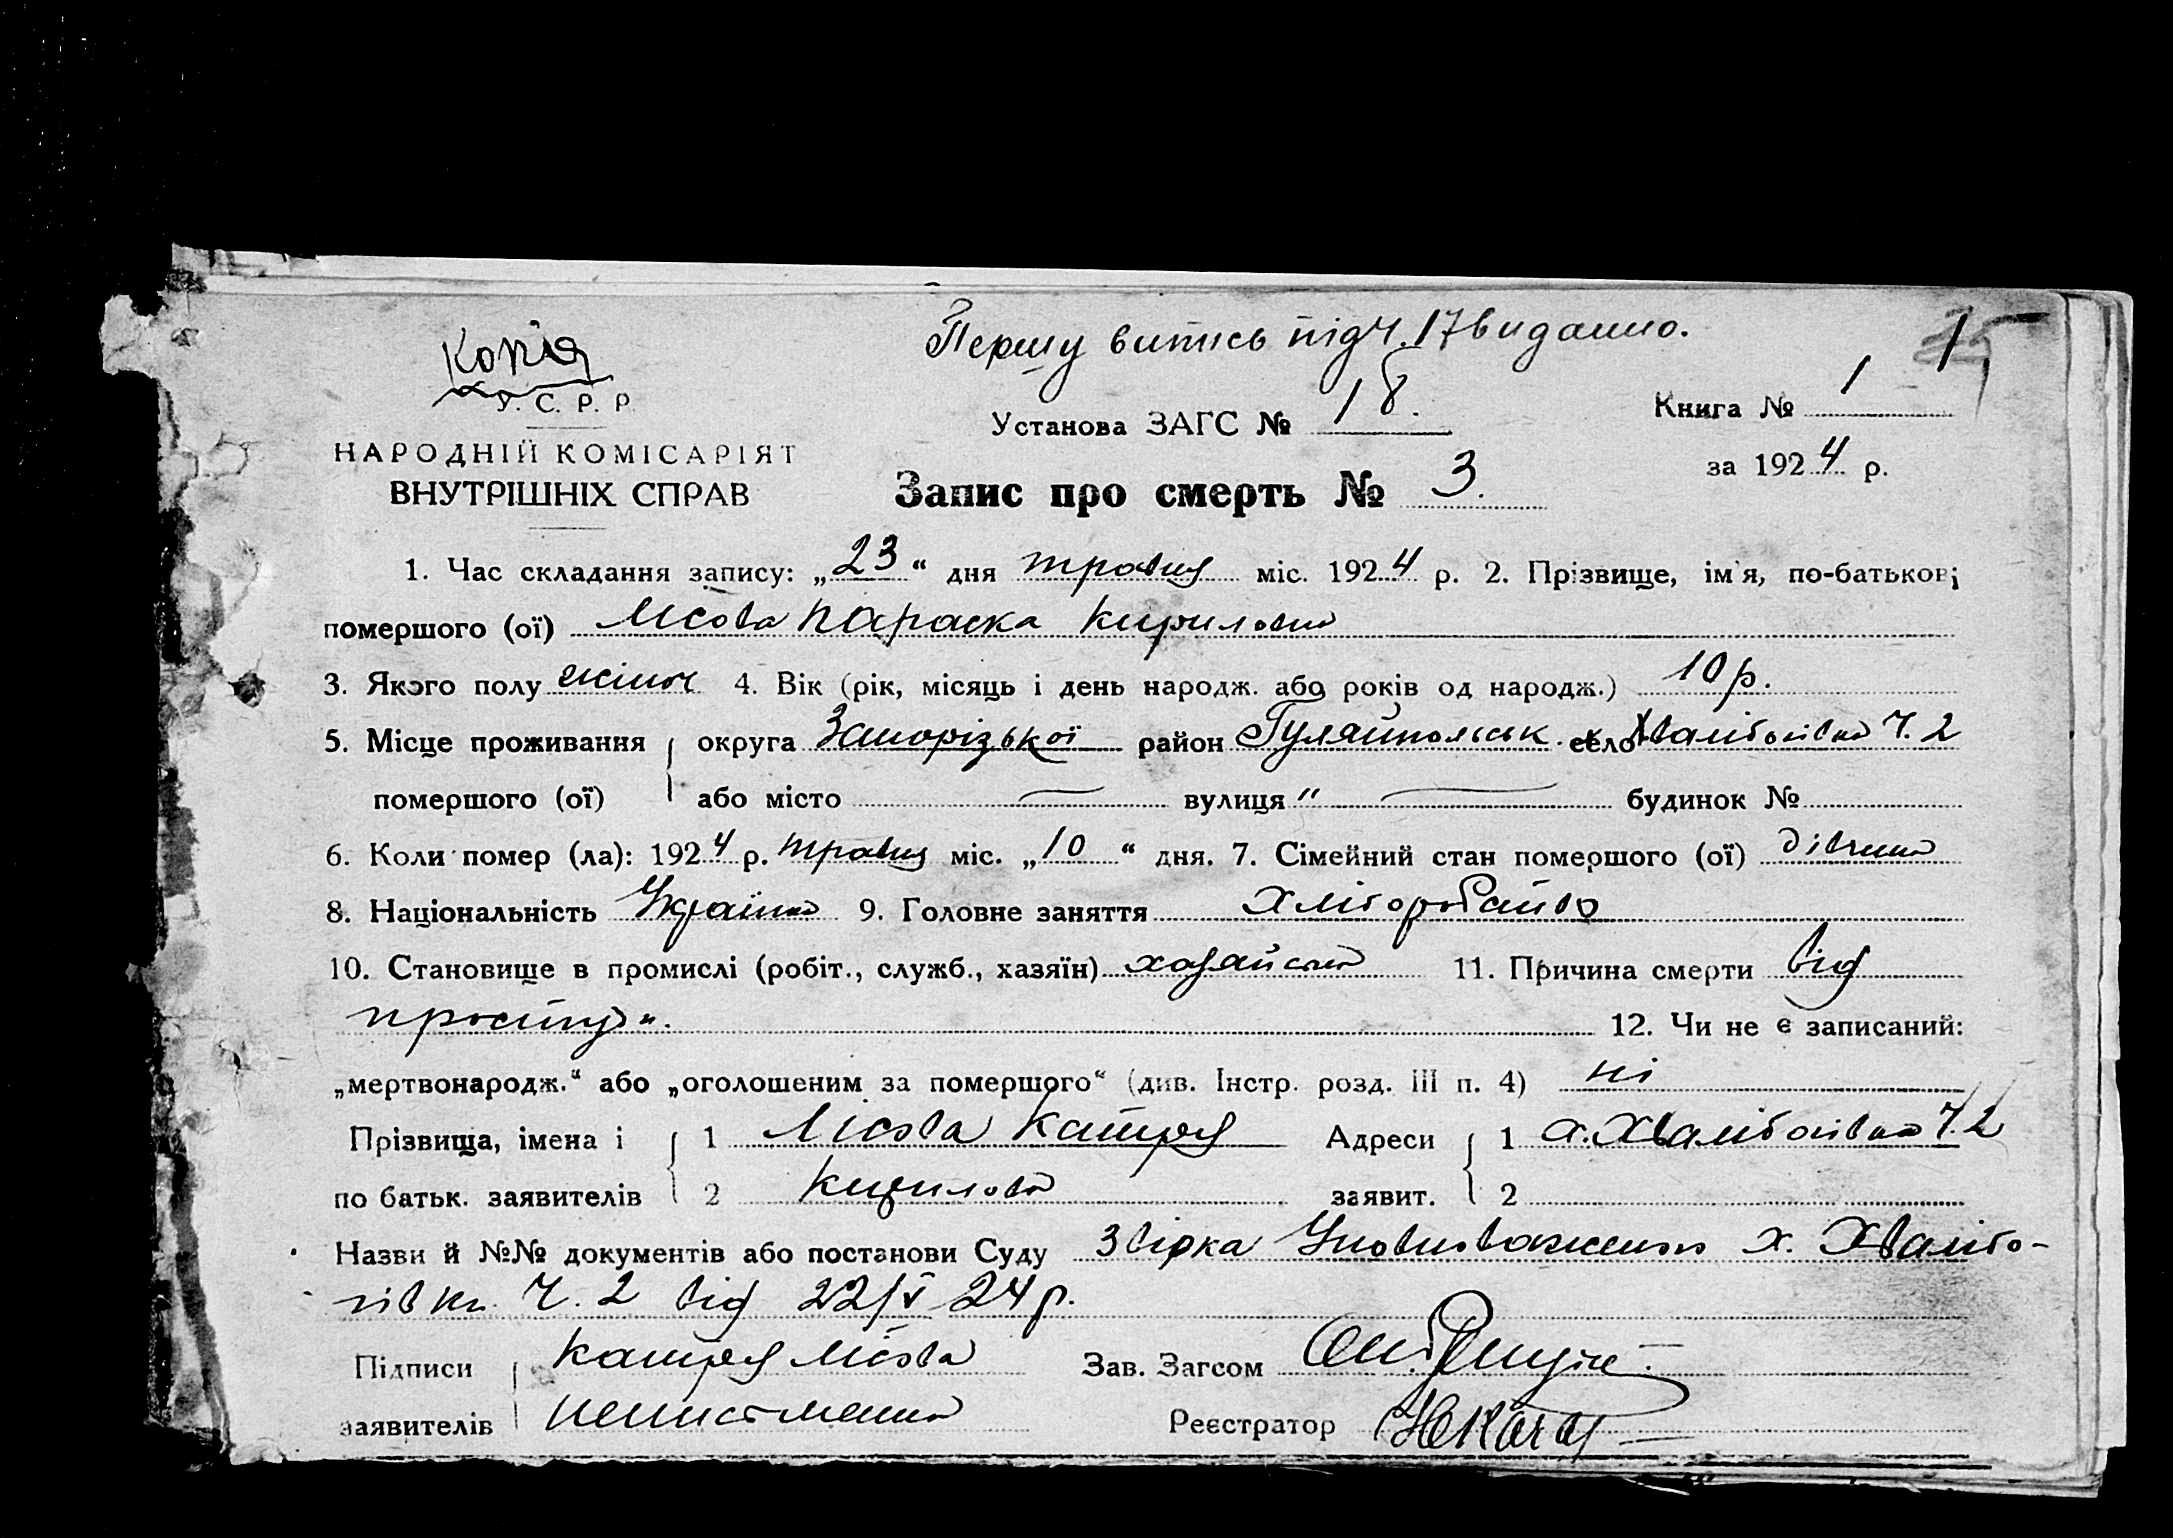 Копія
Першу витись під ч. 17 видано.
1
У. С. Р. Р.
Установа ЗАГС № 18.
Книга № 1
НАРОДНІЙ КОМІСАРІЯТ
ВНУТРІШНІХ СПРАВ
за 1924 р.
Запис про смерть № 3.
1. Час складання запису: „23“ дня травня міс. 1924 р. 2. Прізвище, ім'я, по-батькові
помершого (ої) Лісова Параска Кириловна
3. Якого полу жіноч 4. Вік (рік, місяць і день народж. або років од народж.) 10 р.
5. Місце проживання округа Запорізької район Гуляйпольськ. село Хвалибогівка Ч. 2
помершого (ої) або місто — вулиця " — будинок №
6. Коли помер (ла): 1924 р. травня міс. „10“ дня. 7. Сімейний стан помершого (ої) дівчина
8. Національність Українка 9. Головне заняття Хліборобство
10. Становище в промислі (робіт., служб., хазяїн) 11. Причина смерти від
простуди.
12. Чи не є записаний:
„мертвонародж.“ або „оголошеним за помершого“ (див. Інстр. розд. III п. 4) ні
Прізвища, імена і 1 Лісова Катря Адреси 1 х. Хвалибогівка Ч. 2
по батьк. заявителів 2 Кирилова заявит. 2
Назви й №№ документів або постанови Суду Звірка Уповноваженого х. Хвалибо-
гівки Ч. 2 від 22/V 24 р.
Підписи Катря Лісова Зав. Загсом
заявителів неписьменна Реєстратор